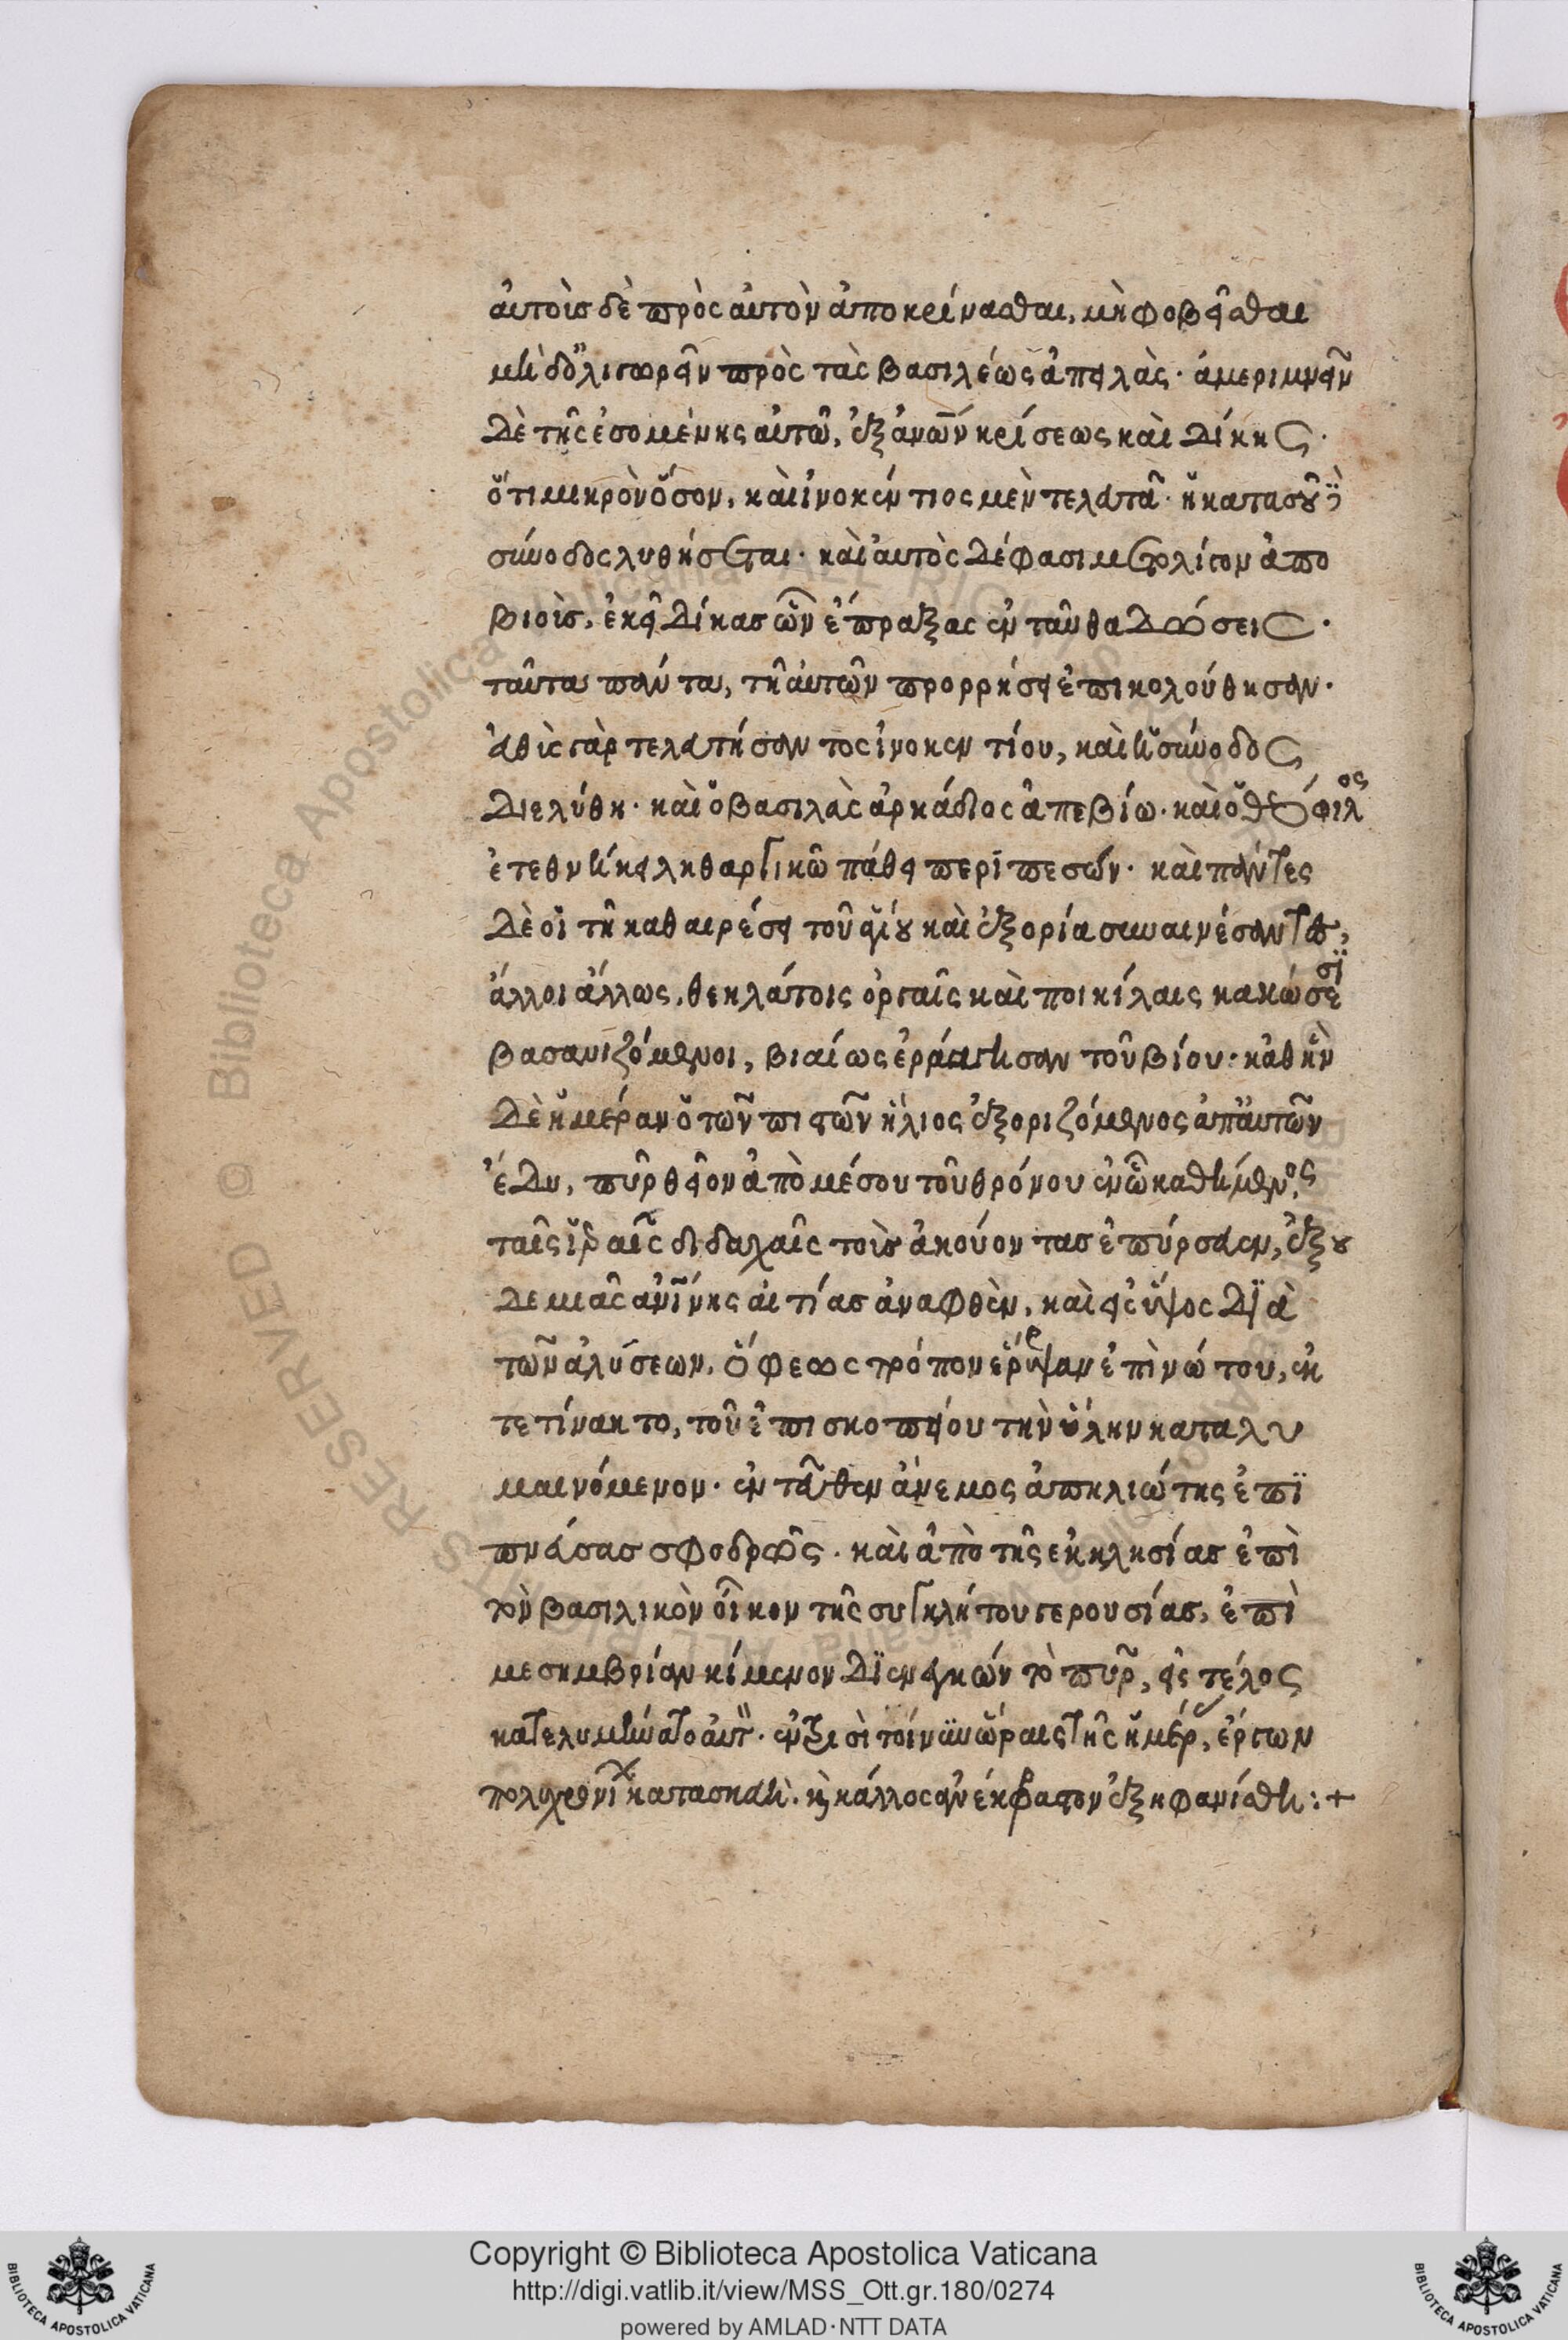 αὐτοῖς δὲ πρὸς αὐτὸν ἀποκρίνασθαι, μὴ φοβεῖσθαι
πρὸς τὰς βασιλέως ἀπειλὰς · ἀμεριμνεῖν
δὲ τῆς ἐσομένης αὐτῶ, ἐξ ἀνῶν κρίσεως καὶ δίκης ·
ὅτι μικρὸν ὅσον, καὶ ἰνοκέντιος μὲν τελευτᾶ · ἡ κατὰ σοῦ
σύνοδος λυθήσεται · καὶ αὐτὸς δέ φασι μετ' ὀλίγον ἀπο
βιοῖς, ἐκεῖ δίκας ὧν ἔπραξας ἐνταῦθα δώσεις ·
ταῦτα πάντα, τῆ αὐτῶν προρρήσει ἐπικολούθησαν ·
γὰρ τελευτήσαντος ἰνοκεντίου, καὶ ἡ σύνοδος
διελύθη · καὶ ὁ βασιλεὺς ἀρκάδιος ἀπεβίω · καὶ ὁ θεόφιλος
ἐτεθνήκει ληθαργικῶ πάθει περιπεσών · καὶ πάντες
δὲ οἱ τῆ καθαιρέσει τοῦ ἁγίου καὶ ἐξορία συναινέσαντες,
ἄλλοι ἄλλως, θεηλάτοις ὀργαῖς καὶ ποικίλαις κακώσεσι
βασανιζόμενοι, βιαίως τοῦ βίου · καθ' ἣν
δὲ ἡμέραν ὁ τῶν πιστῶν ἥλιος ἐξοριζόμενος ἀπ' αὐτῶν
ἔδυ, πῦρ θεῖον ἀπὸ μέσου τοῦ θρόνου ἐν ὧ καθήμενος,
ταῖς ἱεραῖς διδαχαῖς τοὺς ἀκούοντας ἐπύρσευεν, ἐξ οὐ
δεμιᾶς ἀνίνης αἰτίας ἀναφθὲν, καὶ εἰς ὕψος διὰ
τῶν ἀλύσεων, ὄφεως τρόπον ἐπὶ νώτου, ἐκ
τετίνακτο, τοῦ ἐπισκοπείου τὴν ὕλην καταλυ
μαινόμενον · ἐνταῦθεν ἄνεμος ἀπηλιώτης ἐπι
πνεύσας σφοδρῶς · καὶ ἀπὸ τῆς ἐκκλησίας ἐπὶ
τὸν βασιλικὸν οἶκον τῆς συγκλήτου γερουσίας, ἐπὶ
μεσημβρίαν κείμενον διενεγκών τὸ πῦρ, εἰς τέλος
κατελυμήνατο αὐτ · ἐν τρισὶ τοίνυν ὥραις τῆς ἡμέρ, ἔργων
πολυχρονί κατασκευὴ · καὶ κάλλος ἀνέκφραστον ἐξηφανίσθη :+
Copyright © Biblioteca Apostolica Vaticana
http://digi.vatlib.it/view/MSS_Ott.gr.180/0274
powered by AMLAD·NTT DATA
BIBLIOTECA APOSTOLICA VATICANA
BIBLIOTECA APOSTOLICA VATICANA